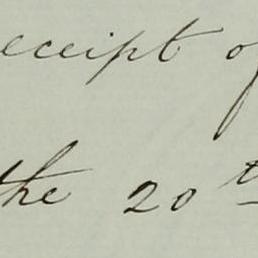 eceipt of
the 20th